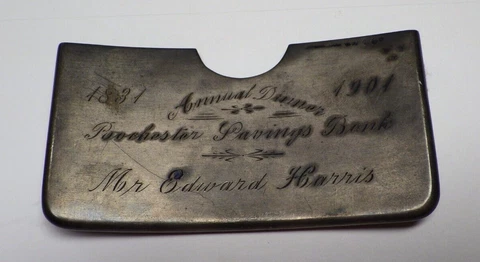 1831 Annual Dinner 1901
Rochester Savings Bank
Mr Edward Harris